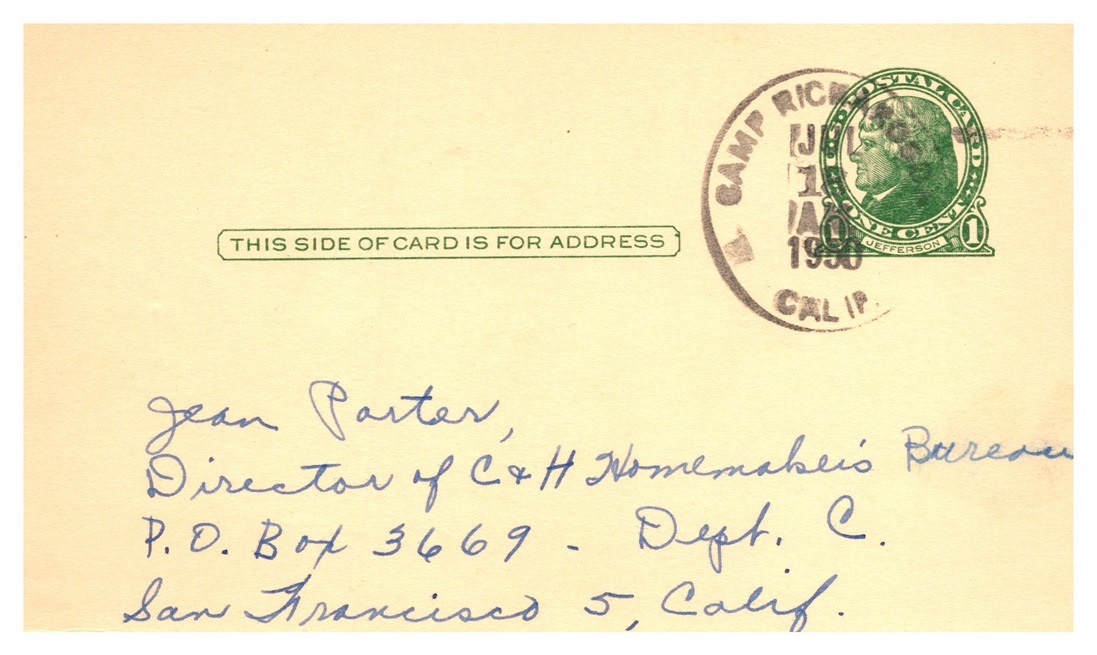 U.S. POSTAL CARD
ONE CENT
1 JEFFERSON 1
CAMP RICHARDSON
JUL
PM
1950
CALIF.
THIS SIDE OF CARD IS FOR ADDRESS
Jean Porter,
Director of C & H Homemakers Bureau
P.O. Box 3669 - Dept. C.
San Francisco 5, Calif.